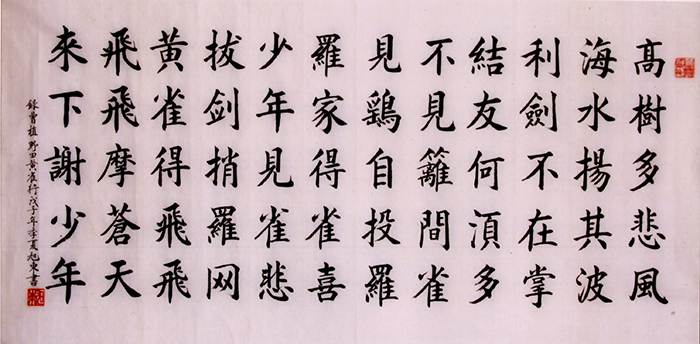 高樹多悲風
海水揚其波
利劍不在掌
結友何湏多
不見籬間雀
見鷂自投羅
羅家得雀喜
少年見雀悲
拔剑捎羅网
黄雀得飛飛
飛飛摩蒼天
來下謝少年
録曹植野田黄雀行戊子年季夏旭東書